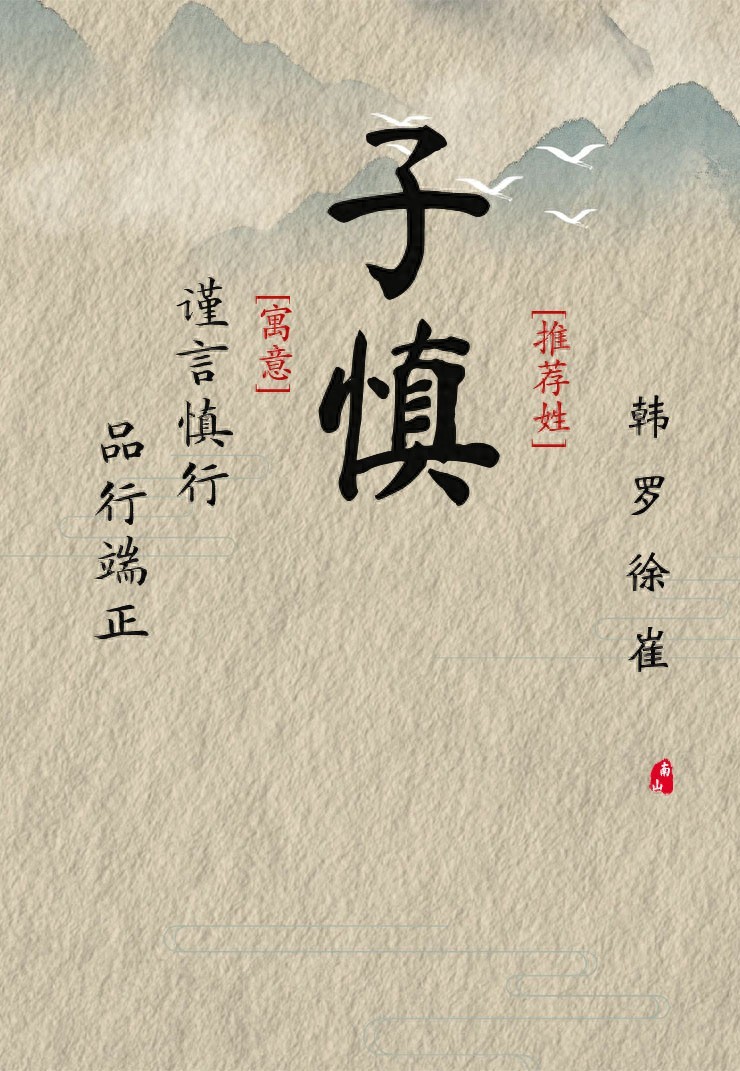 子慎
[推荐姓]
韩罗徐崔
[寓意]
谨言慎行
品行端正
南山